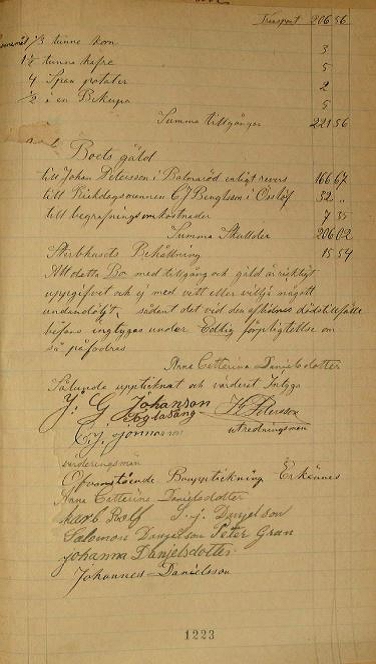 Transport 206 56
1/3 tunne korn 3
1 1/2 tunna hafre 5
4 Span potater 2
1/2 i en Bikupa 5
Summa tillgånger 221 56
Boets gäld
till Johan Petersson i enligt revers 166 67
till Riksdagsmannen C J Bengtsson i 32 "
till begrafningsomkostnader 7 35
Summa Skulder 206 02
Sterbhusets Behållning 15 54
Att detta Bo med tillgång och gäld är riktigt
uppgifvet och ej med vett eller vilja något
undandöljt, sådant det vid den aflidnes dödstillfälle
befans intygas under Edlig förpligtelse om
så påfodras
Anna Cattarina Danjelsdotter
Sålunda upptecknat och värderat Intyga
J. G. Johanson
utredningsman
värderingsmän
Ofvanstående Bouppteckning Erkännes
Anna Cattarina Danielsdotter
Karl B Rolf S. J. Danjelson
Salomon Danjelson Peter Gran
Johanna Danjelsdotter
Johannes Danielsson
1223